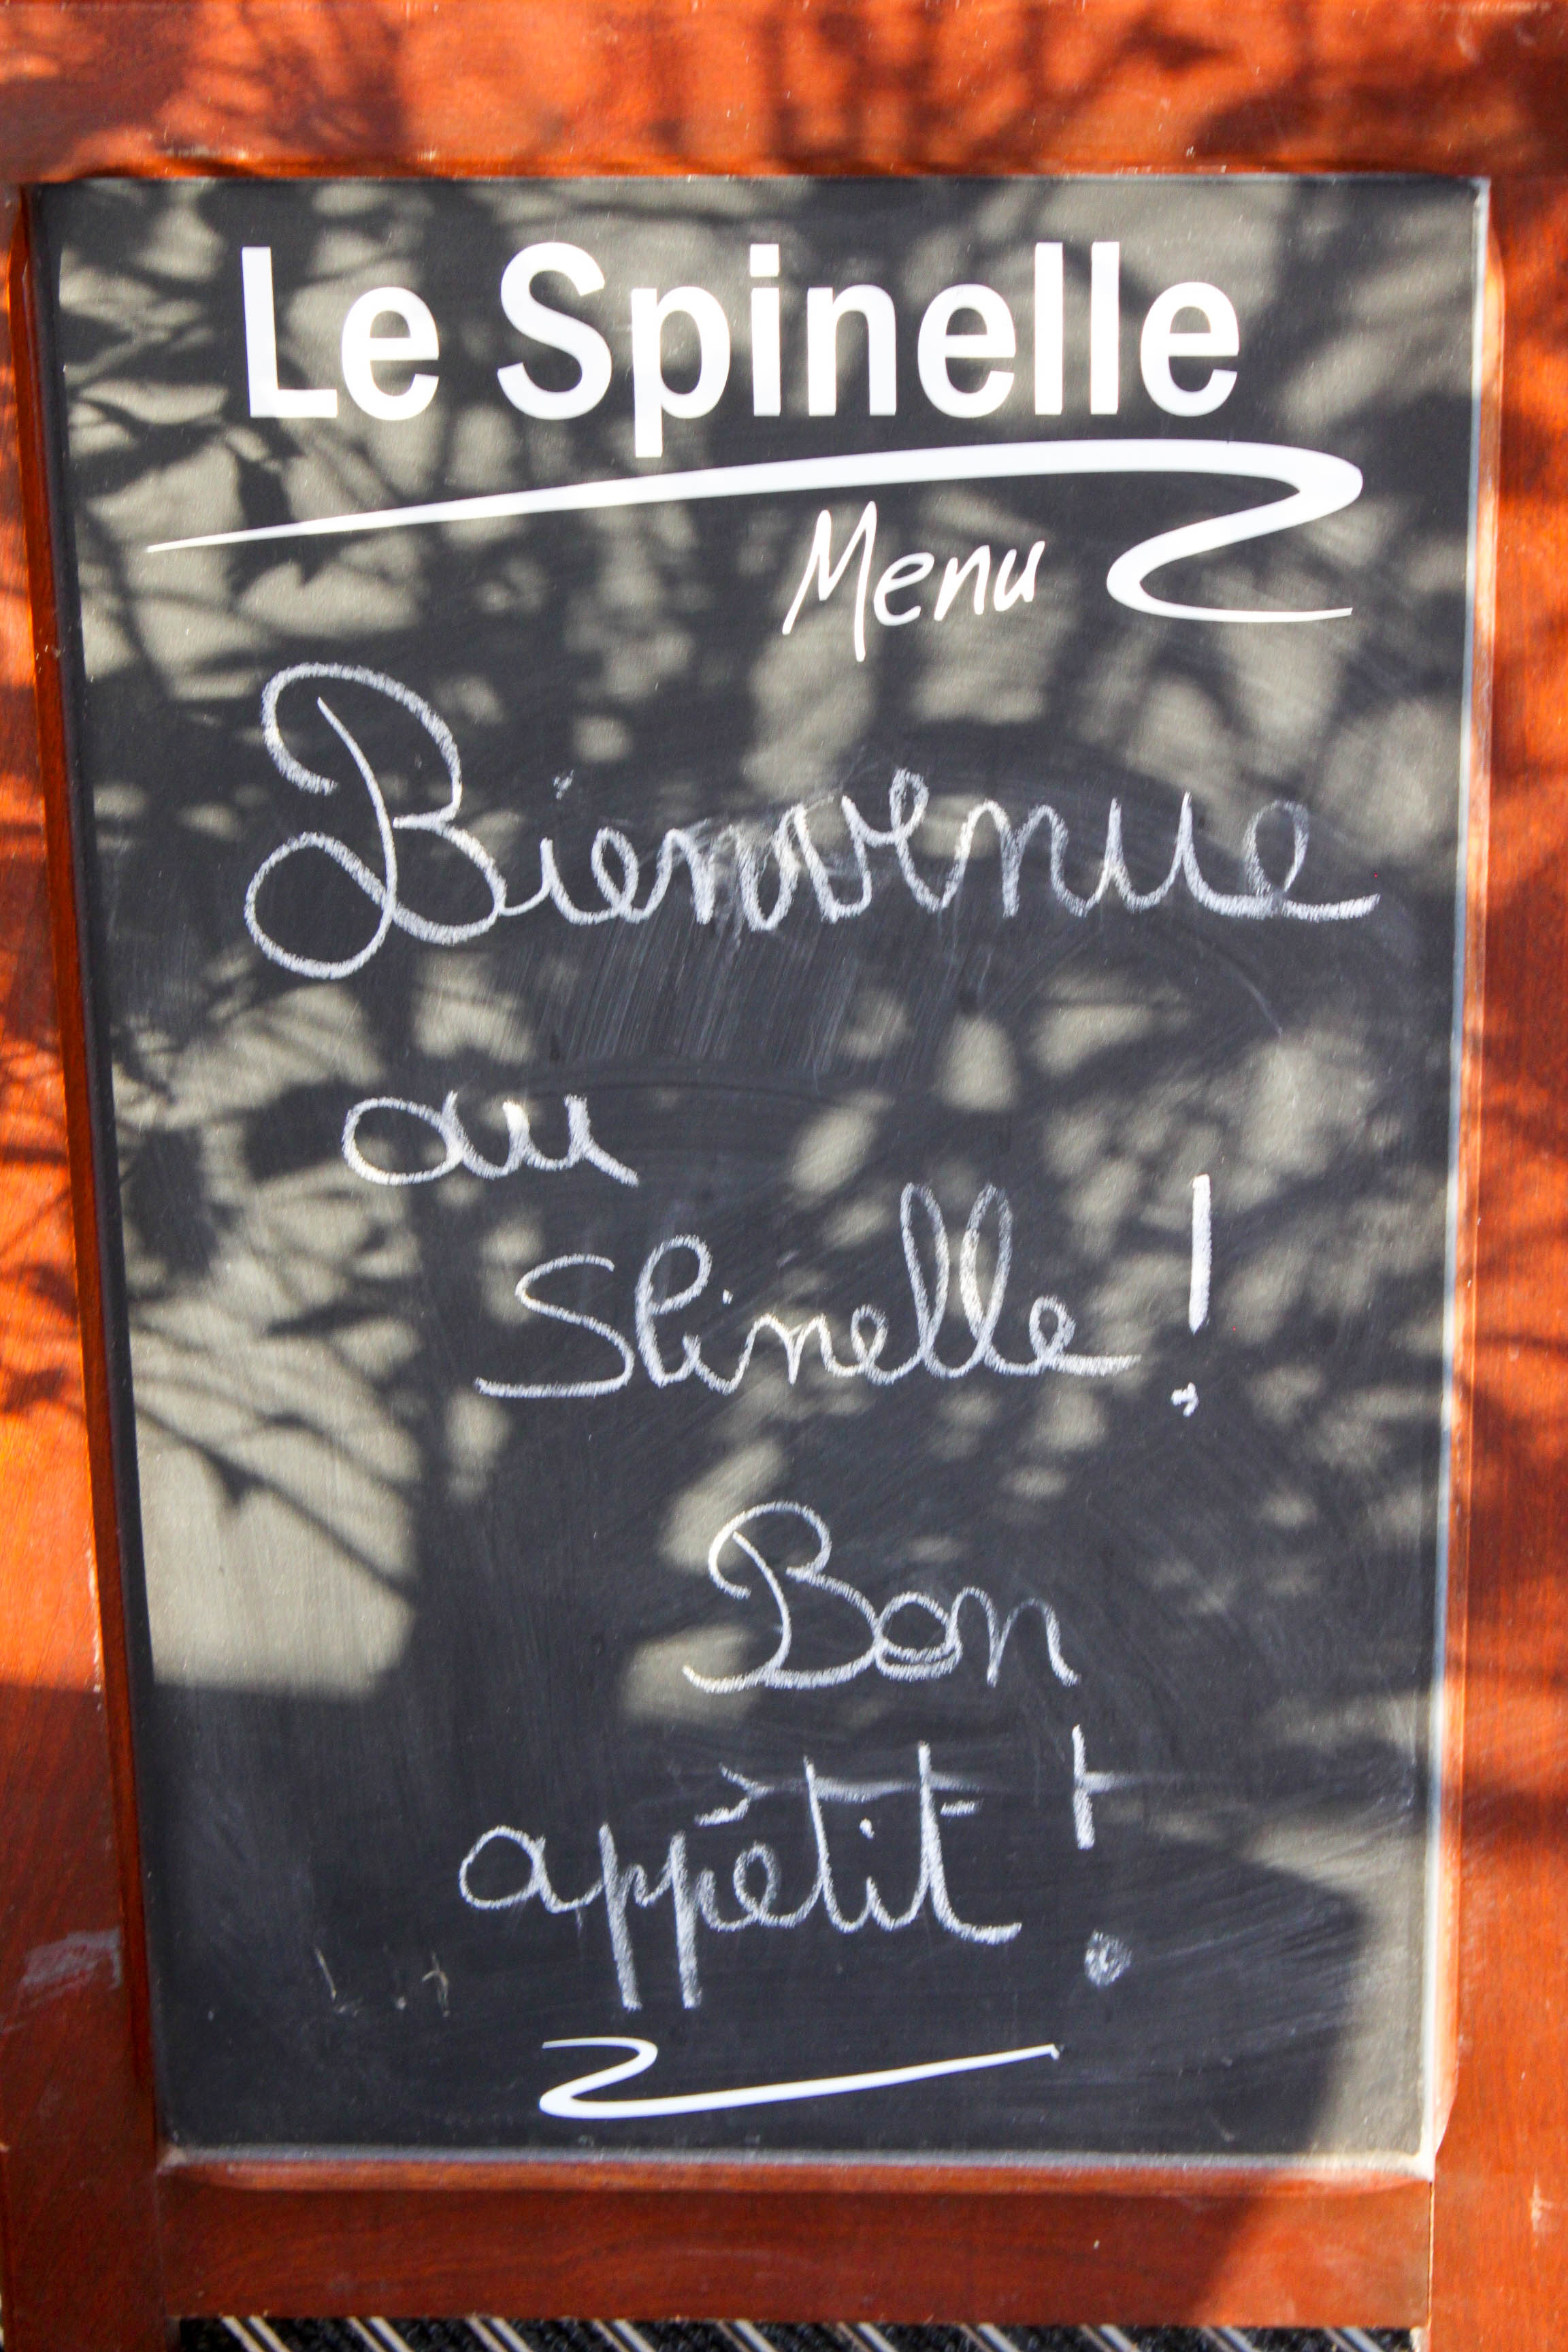 Le Spinelle
Menu
Bienvenue
au
Spinelle !
Bon
appétit !